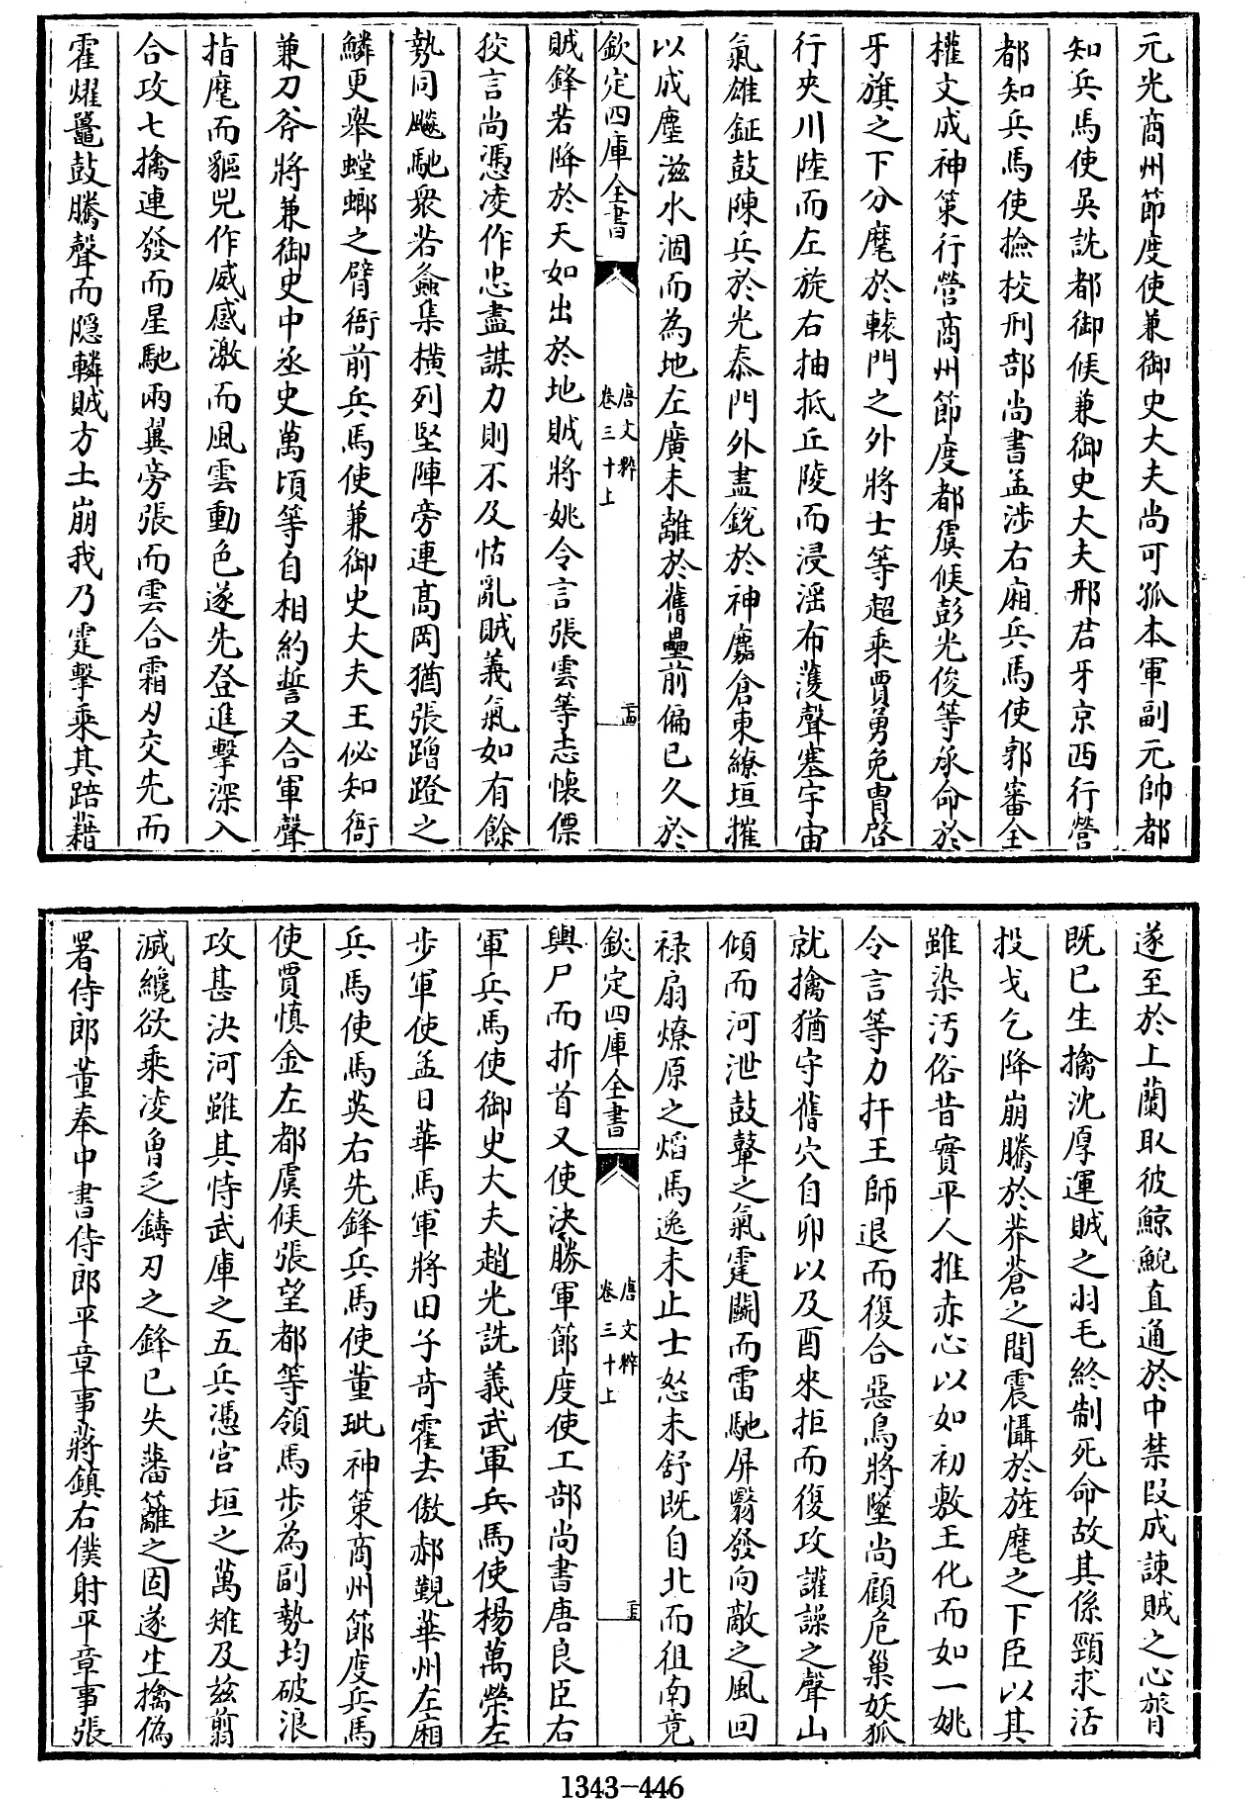 元光商州節度使兼御史大夫尚可孤本軍副元帥都
知兵馬使吳詵都御候兼御史大夫邢君牙京西行營
都知兵馬使撿校刑部尚書孟涉右廂兵馬使郭審全
權文成神策行營商州節度都虞候彭光俊等承命於
牙旗之下分麾於轅門之外將士等超乘賈勇免胄啓
行夾川陸而左旋右抽抵丘陵而浸淫布濩聲塞宇宙
氣雄鉦鼓陳兵於光泰門外盡銳於神麚倉東繚垣摧
以成塵滋水涸而為地左廣未離於舊壘前偏已久於
欽定四庫全書
唐文粹
卷三十上
賊鋒若降於天如出於地賊將姚令言張雲等志懷僄
狡言尚憑凌作忠盡謀力則不及怙亂賊義氣如有餘
勢同飈馳衆若螽集橫列堅陣旁連髙岡猶張蹭蹬之
鱗更舉螳螂之臂衙前兵馬使兼御史大夫王佖知衙
兼刀斧將兼御史中丞史萬頃等自相約誓又合軍聲
指麾而軀兕作威感激而風雲動色遂先登進擊深入
合攻七擒連發而星馳兩翼旁張而雲合霜刃交先而
霍燿鼉鼓騰聲而隱轔賊方土崩我乃霆擊乘其踣藉
遂至於上蘭取彼鯨鯢直通於中禁叚成諫賊之心膂
既已生擒沈厚運賊之羽毛終制死命故其係頸求活
投戈乞降崩騰於莽蒼之間震懾於旌麾之下臣以其
雖染汚俗昔實平人推赤心以如初敷王化而如一姚
令言等力扞王師退而復合惡鳥將墜尚顧危巢妖狐
就擒猶守舊穴自卯以及酉來拒而復攻讙譟之聲山
傾而河泄鼓鼙之氣霆鬭而雷馳屏翳發向敵之風回
祿扇燎原之焰馬逸未止士怒未舒既自北而徂南竟
欽定四庫全書
唐文粹
卷三十上
輿尸而折首又使決勝軍節度使工部尚書唐良臣右
軍兵馬使御史大夫趙光詵義武軍兵馬使楊萬榮左
步軍使孟日華馬軍將田子奇霍去傲郝覲華州左廂
兵馬使馬英右先鋒兵馬使董玼神策商州節度兵馬
使賈慎金左都虞候張望都等領馬步為副勢均破浪
攻甚決河雖其恃武庫之五兵憑宫垣之萬雉及兹翦
滅纔欲乘凌曾乏鑄刃之鋒已失藩籬之固遂生擒偽
署侍郎董奉中書侍郎平章事蔣鎮右僕射平章事張
1343-446